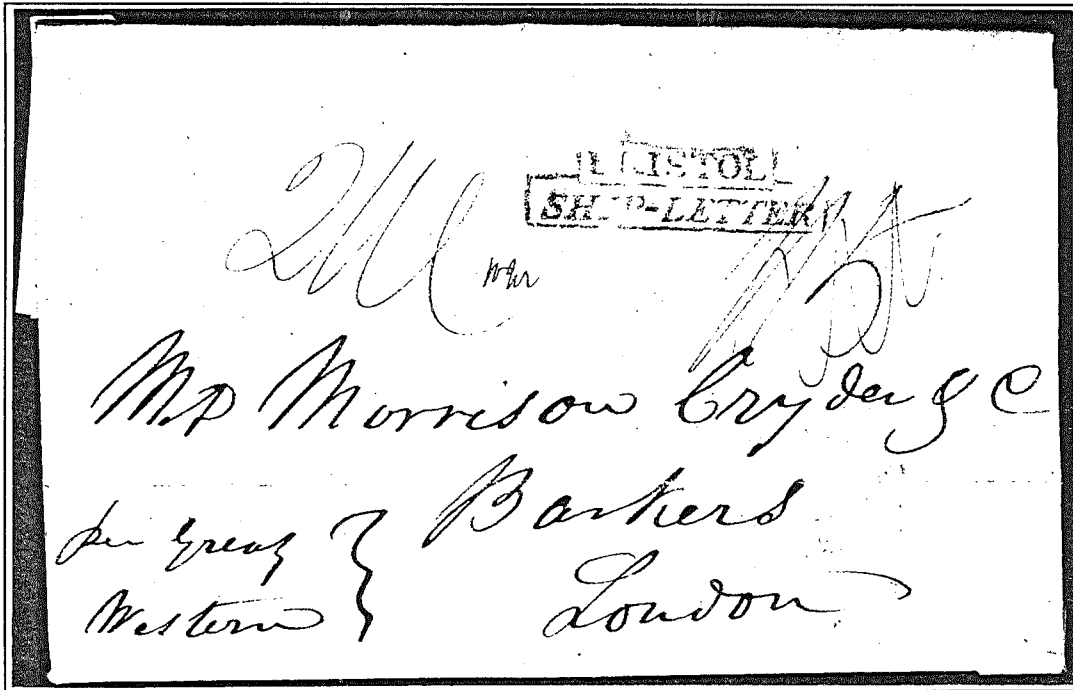 BRISTOL
SHIP-LETTER
Mr Morrison Cryder & C
Bankers
London
per Great
Western